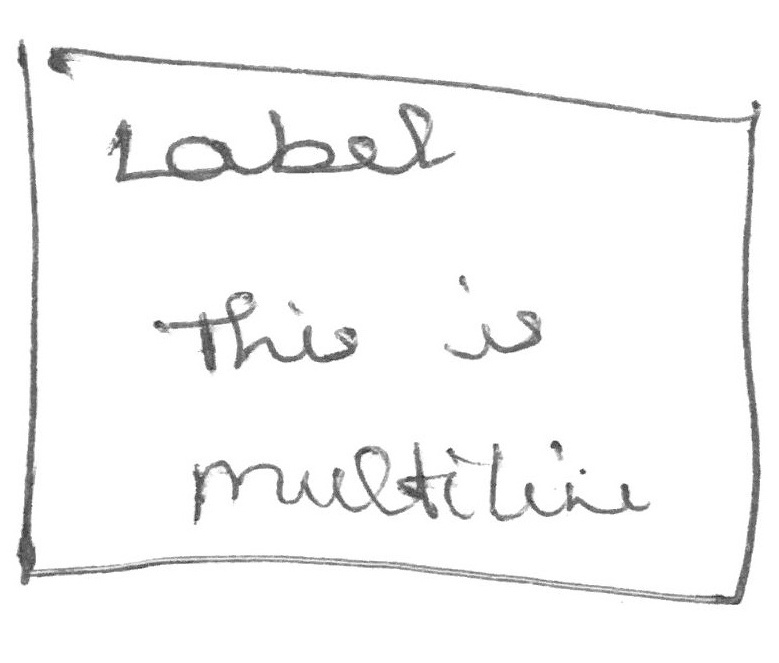 Label
This is
multiline